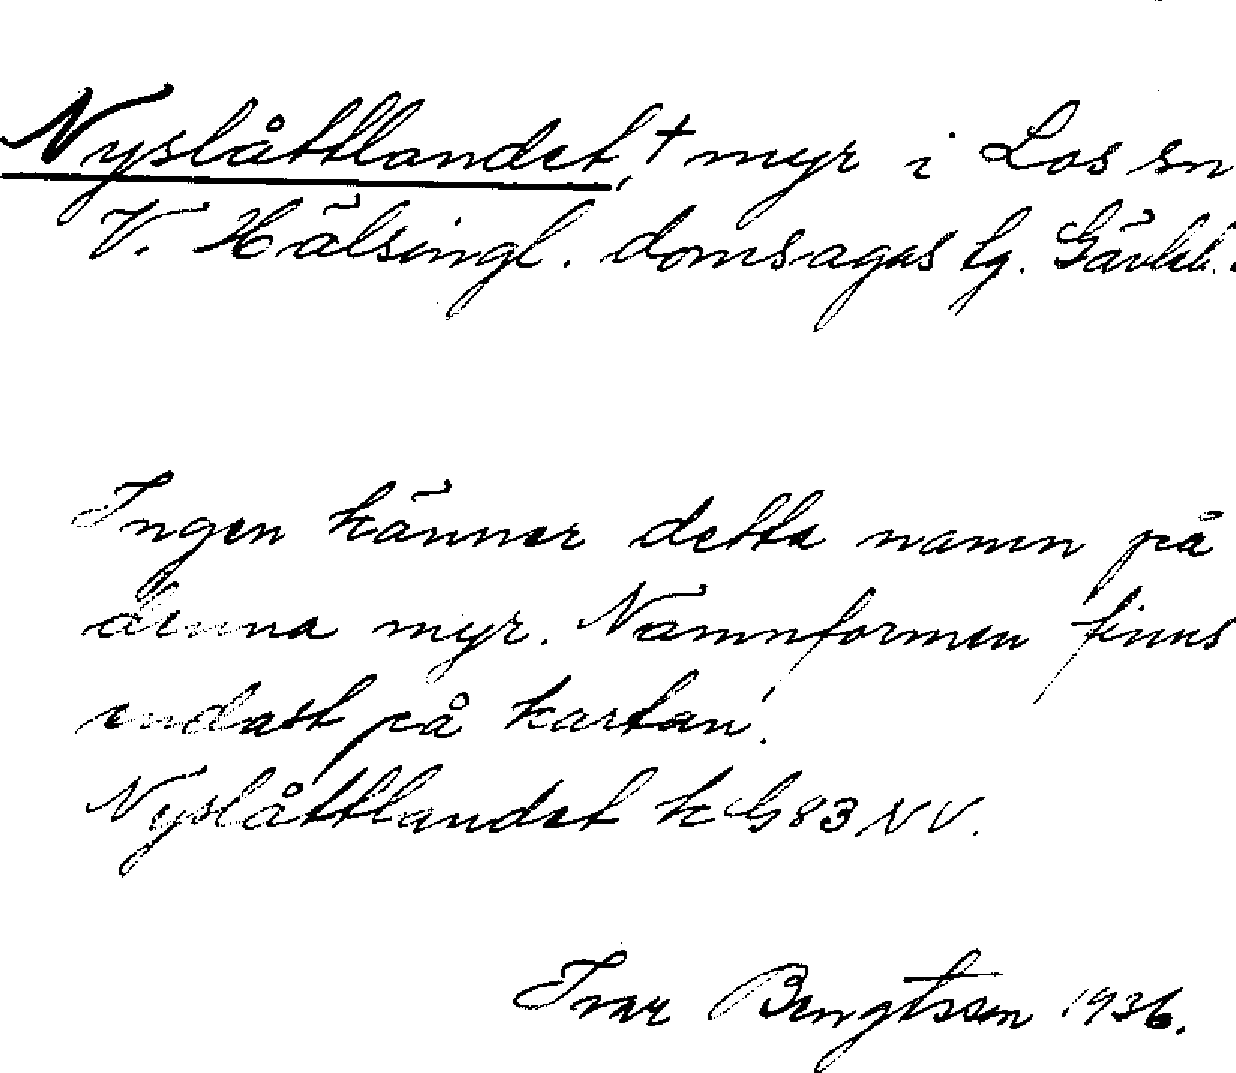 Nyslåttlandet,+ myr i Los sn
V. Hälsingl. domsagas lg. Gävleb.
Ingen känner detta namn på
denna myr. Namnformen finns
endast på kartan.
Nyslåttlandet k G83 NV.
Ivar Bengtsson 1936.